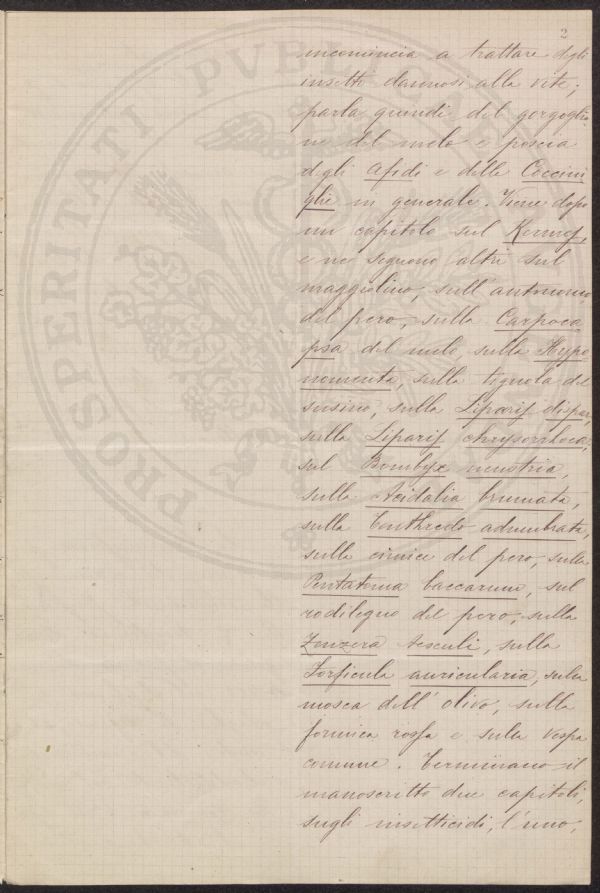 2
incomincia a trattare degli
insetti dannosi alla vite;
parla quindi del gorgoglio
ne del melo e poscia
degli Afidi e delle Coccini
glie in generale. Viene dopo
un capitolo sul Kermes,
e ne seguono altri sul
maggiolino, sull'antonomo
del pero, sulla Carpoca
psa del melo, sulla Hypo
nomenta, sulla tignola del
susino, sulla Liparis dispar,
sulla Liparis chrysorrhoea,
sul Bombyx neustria,
sulla Acidalia brumata,
sulla Tenthredo adumbrata,
sulla cimice del pero, sulla
Pentatoma baccarum, sul
rodilegno del pero, sulla
Zeuzera Aesculi, sulla
Forficula auricularia, sulla
mosca dell'olivo, sulla
formica rossa e sulla vespa
comune. Terminano il
manoscritto due capitoli,
sugli insetticidi, l'uno,
PROSPERITATI PVBLICAE